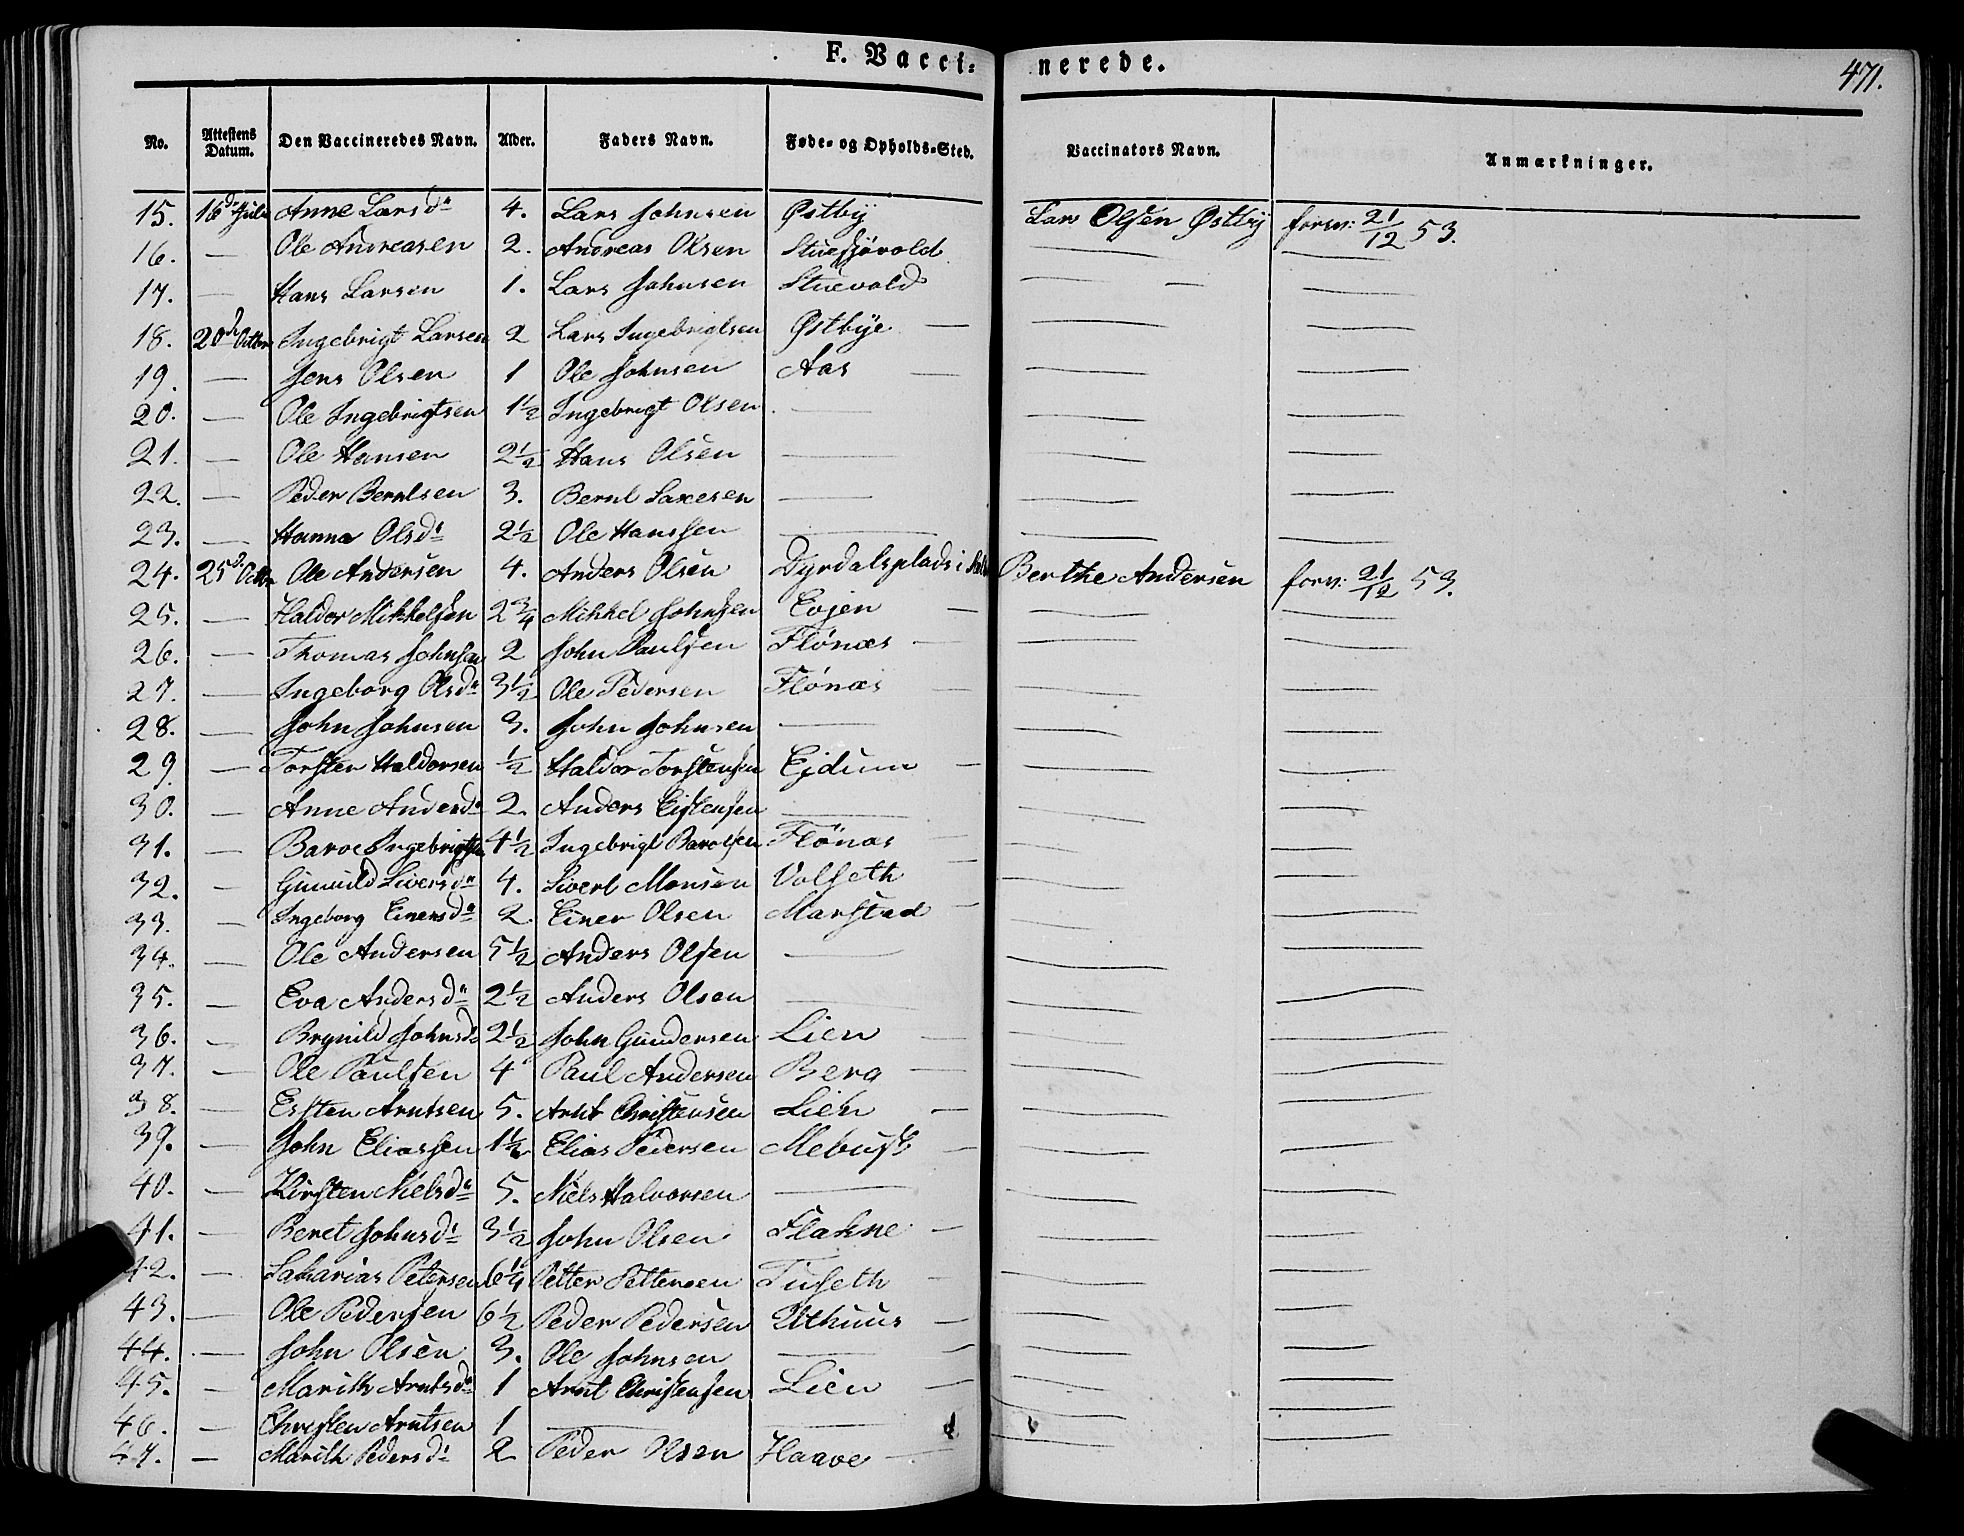 F. Vaccinerede.
471.
No. Attestens Datum. Den Vaccineredes Navn. Alder. Faders Navn. Føde- og Opholds-Sted. Vaccinators Navn. Anmærkninger.
15. 16d Juli Anne Larsdr 4. Lars Johnsen Østby Lars Olsen Østby forsv: 21/12 53.
16. — Ole Andreasen 2. Andreas Olsen — —
17. — Hans Larsen 1. Lars Johnsen Stuevold — —
18. 20d Octbr Ingebrigt Larsen 2 Lars Ingebrigtsen Østbye — — —
19. — Jens Olsen 1 Ole Johnsen Aas — — —
20. — Ole Ingebrigtsen 1½ Ingebrigt Olsen — — —
21. — Ole Hansen 2½ Hans Olsen — — —
22. — Peder Berntsen 3. Bernt Larsen — — —
23. — Hanna Olsdr 2½ Ole Hanssen — — —
24. 25d Octbr Ole Andersen 4. Anders Olsen Dyrdalsplads i Berthe Andersen forsv: 21/12 53.
25. — Haldor Mikkelsen 2¾ Mikkel Johnsen Evjen — — —
26. — Thomas Johnsen 2 John Paulsen Flönæs — — —
27. — Ingeborg Olsdr 3½ Ole Pedersen Flönæs — — —
28. — John Johnsen 3. John Johnsen — — —
29. — Torsten Haldorsen ½ Haldor Torstensen Ejdum — — —
30. — Anne Andersdr 2. Anders Eistensen — — —
31. — Baroe Ingebrigtsen 4½ Ingebrigt Baroesen Flönæs — — —
32. — Gunild Siversdr 4. Sivert Monsen Volseth — —
33. — Ingeborg Einersdr 2. Einer Olsen Marstad — — —
34. — Ole Andersen 5½ Anders Olsen — — —
35. — Eva Andersdr 2½ Anders Olsen — — —
36. — Brynild Johnsdr 2½ John Gundersen Lien — — —
37. — Ole Paulsen 4 Paul Andersen Berg — — —
38. — Esten Arntsen 5. Arnt Christensen Lien — — —
39. — John Eliassen 1½ Elias Pedersen Mebust — — —
40. — Kirsten Nielsdr 5. Niels Halvorsen — — —
41. — Beret Johnsdr 3½ John Olsen Flakne — — —
42. — Sakarias Petersen 6¼ Petter Pettersen Tuseth — — —
43. — Ole Pedersen 6½ Peder Pedersen Uthuus — — —
44. — John Olsen 3. Ole Johnsen — — —
45. — Marith Arntsdr 1 Arnt Christensen Lien — — —
46. — Christen Arntsen 1 — — — —
47. — Marith Pedersdr 2 Peder Olsen Haave — — —